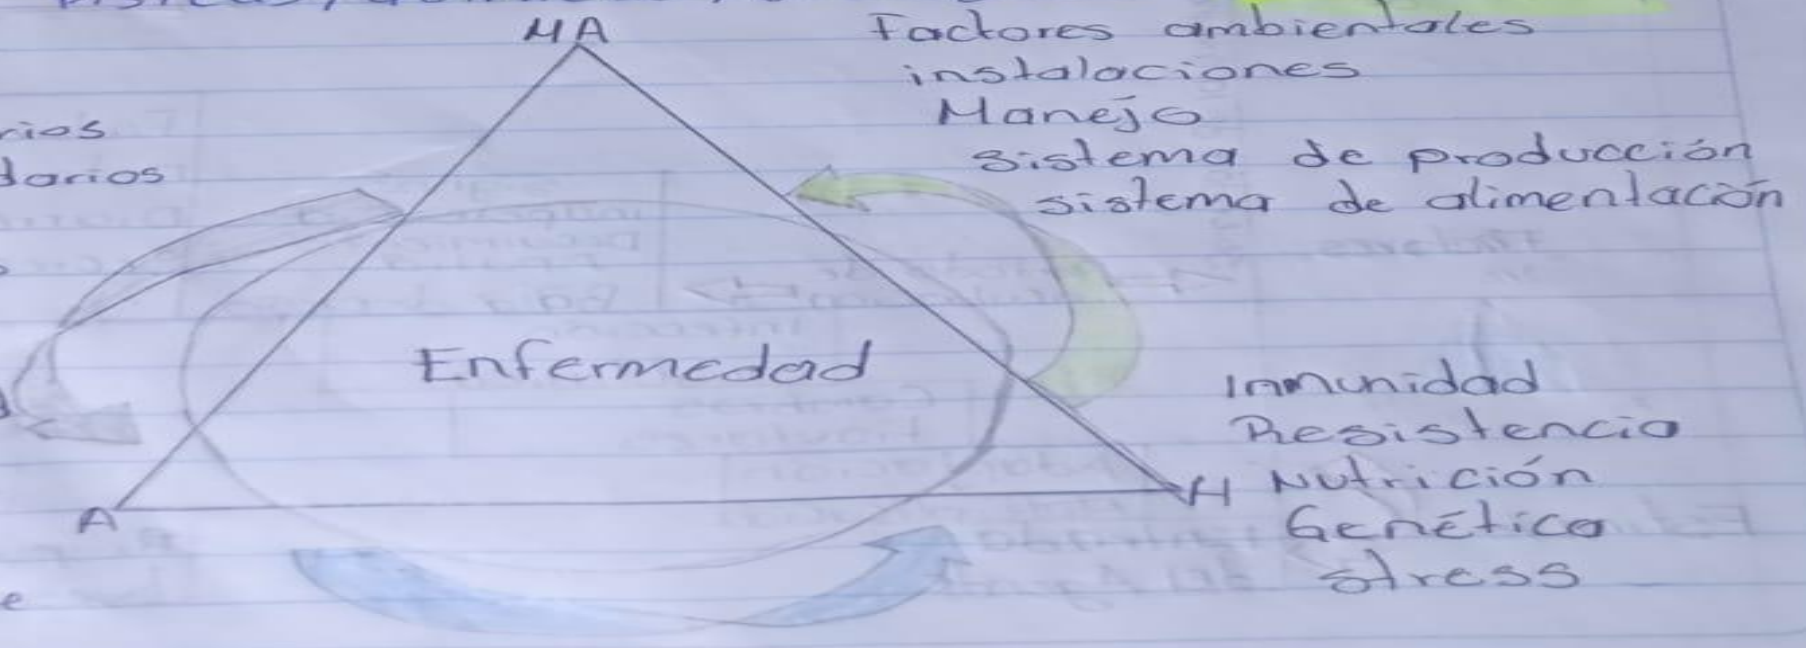 MA
Factores ambientales
instalaciones
Manejo
sistema de producción
sistema de alimentación
rios
darios
Enfermedad
Inmunidad
Resistencia
H Nutrición
Genética
stress
A
e